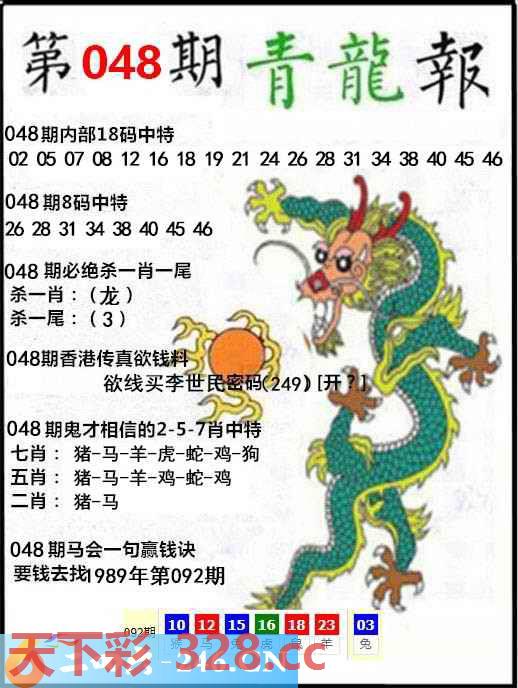 第048期青龍報
048期内部18码中特
02 05 07 08 12 16 18 19 21 24 26 28 31 34 38 40 45 46
048期8码中特
26 28 31 34 38 40 45 46
048 期必绝杀一肖一尾
杀一肖：（龙）
杀一尾：（3）
048期香港传真欲钱料
欲线买李世民密码(249)[开?]
048期鬼才相信的2-5-7肖中特
七肖： 猪-马-羊-虎-蛇-鸡-狗
五肖： 猪-马-羊-鸡-蛇-鸡
二肖： 猪-马
048期马会一句赢钱诀
要钱去找1989年第092期
092期 10 12 15 16 18 23 03
猴 马 虎 鼠 羊 兔
天下彩-328.cc